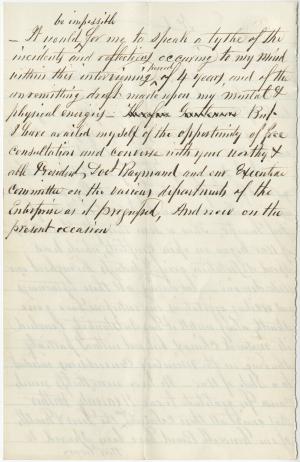 be impossible
– It would for me to speak a tythe of the
incidents and reflections occuring to my mind
within this intervening period of 4 years and of the
unremitting draft made upon my mental &
physical energies – But
I have availed myself of the opportunity of free
consultation and converse with your worthy &
able President, Doct Raymond and our Executive
Committee on the various departments of the
Enterprise as it progressed, And now on the
present occasion